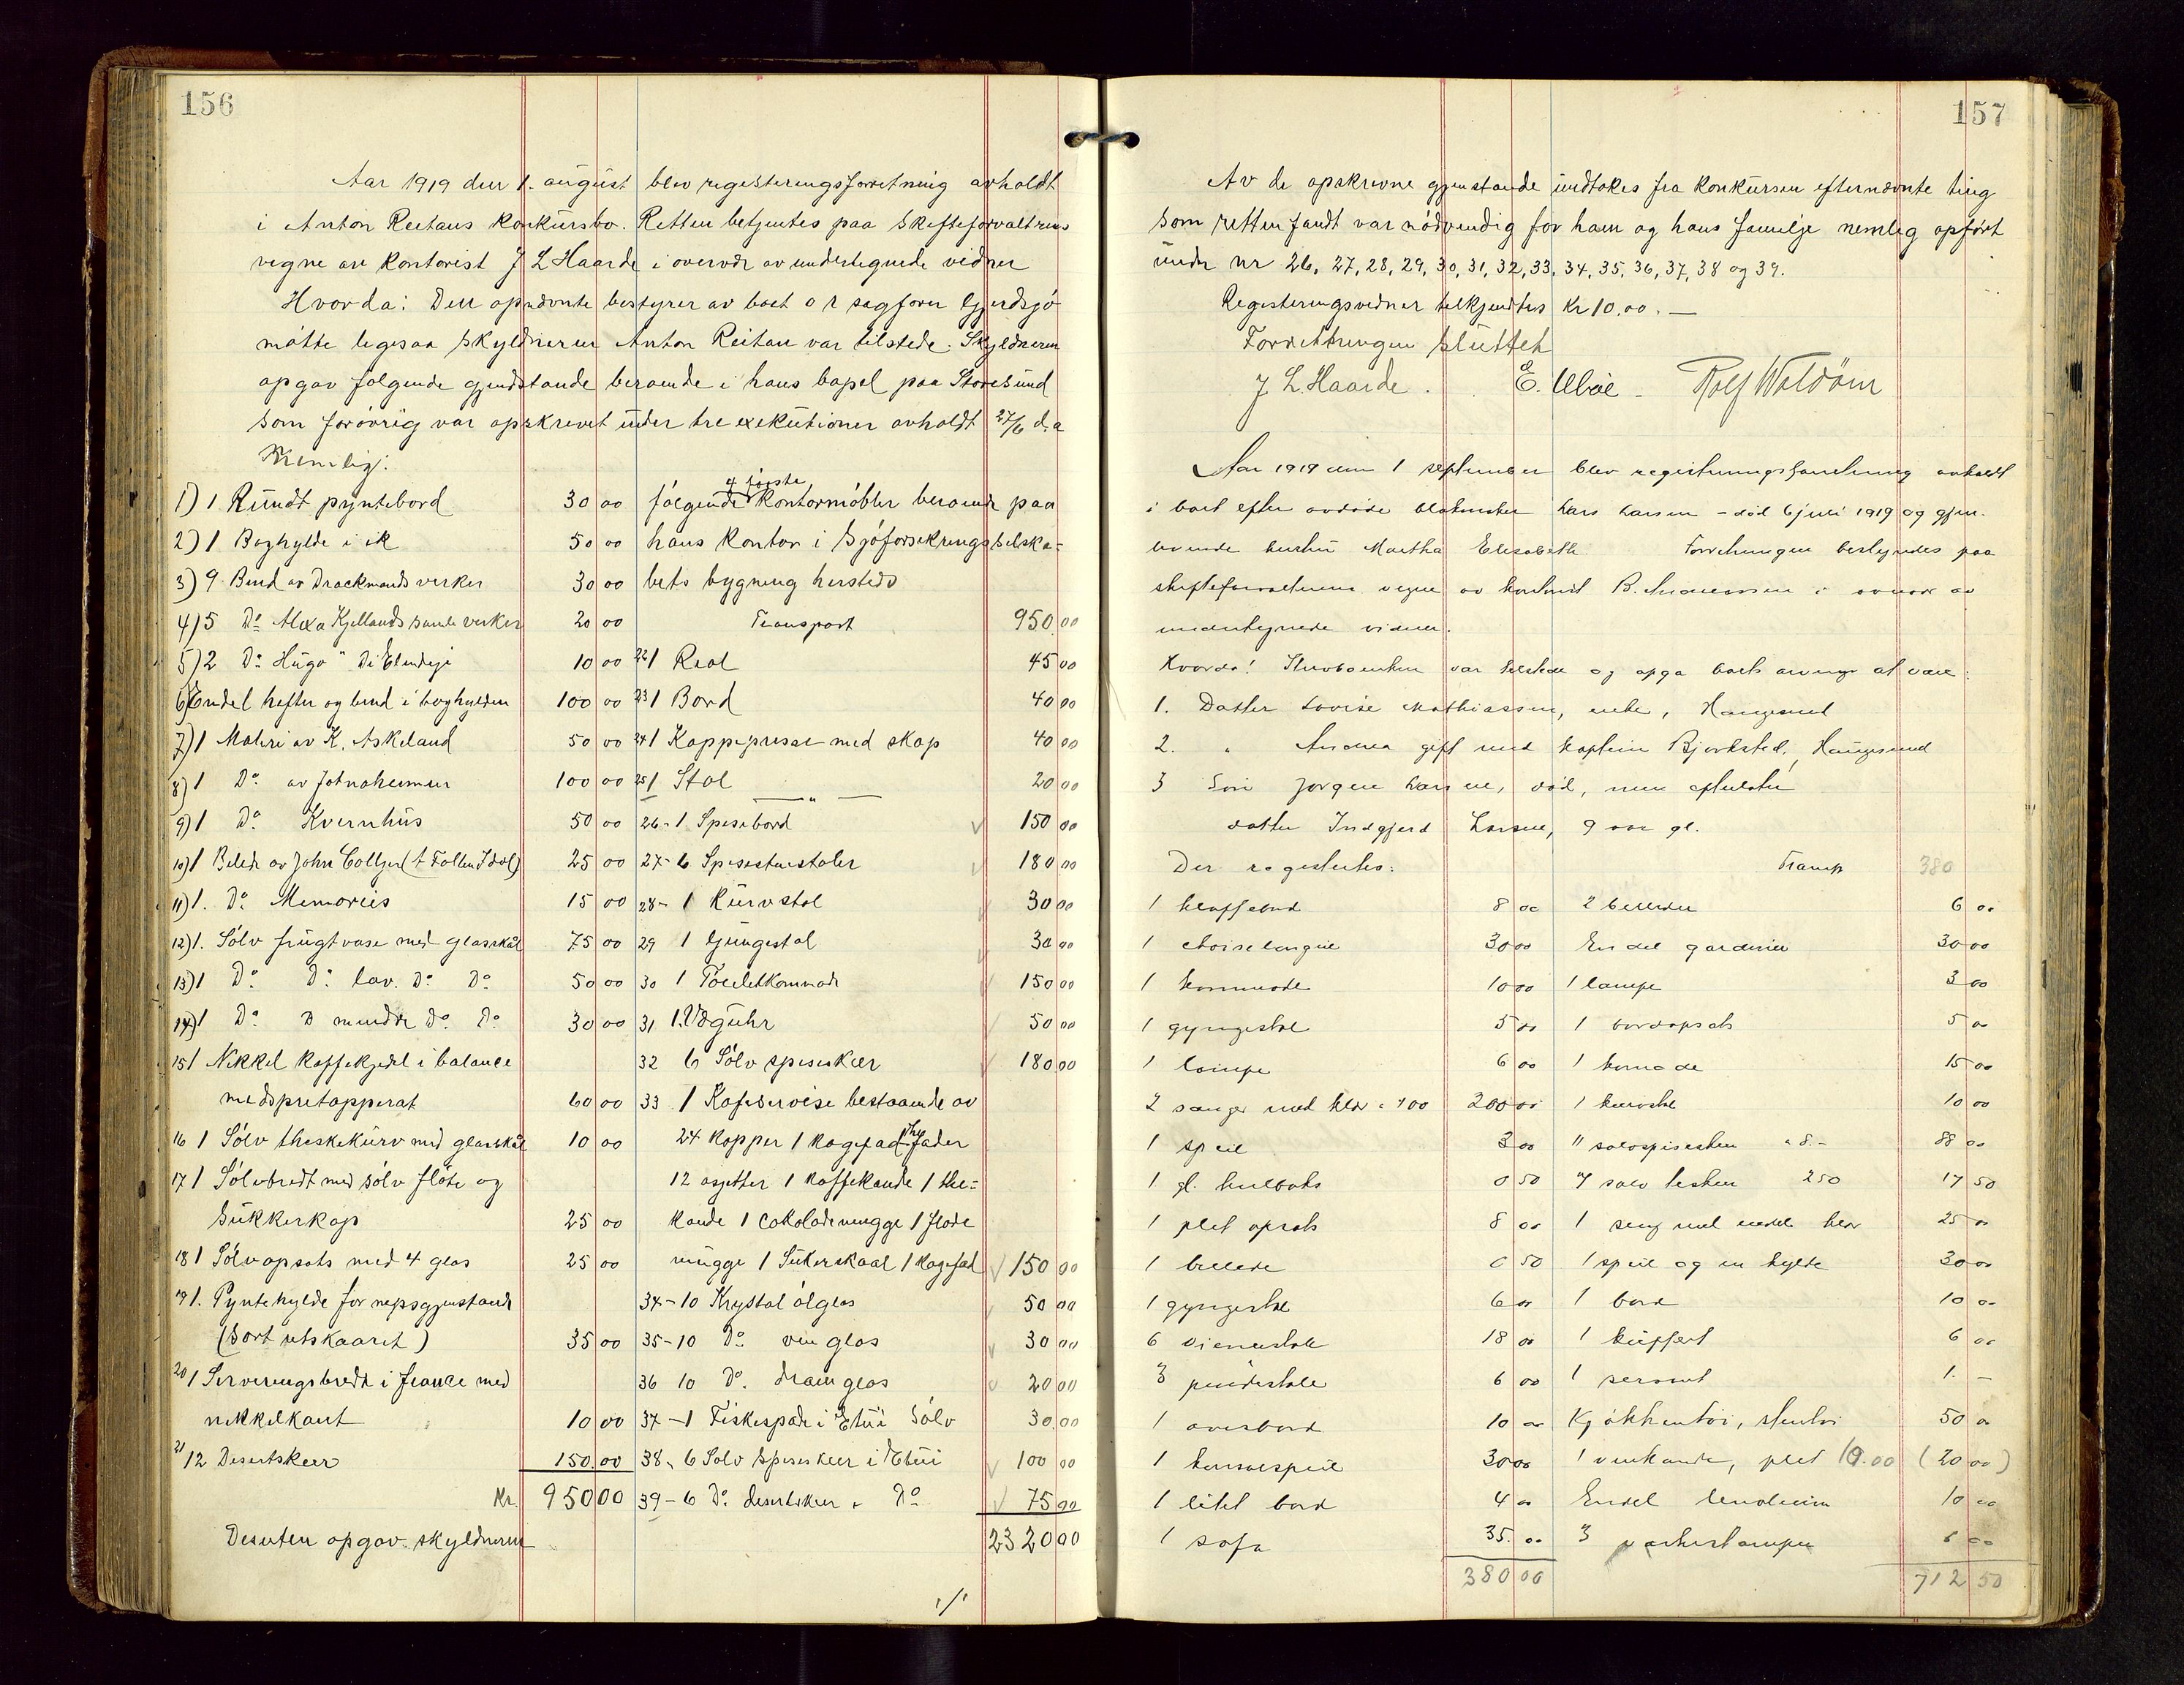 156
Aar 1919 den 1. august blev registeringsforretning avholdt
i Anton Reitans Konkursbo. Retten betjentes paa skifteforvalterens
vegne av Kontorist J L Haarde i overvær av undertegnede vidner
Hvorda: Den opnævnte bestyrer av boet o r sagfører Gjerdsjø
møtte legesaa skyldneren Anton Reitan var tilstede. Skyldneren
opgav følgende gjendstande beroende i hans bopel paa Storesund
som forøvrig var opskrevet under tre exekutioner avholdt 27/6 d.a
Nemlig:
1) 1 Rundt pyntebord 30 00
2) 1 Boghylde i ek 50 00
3) 9 Bind av Drackmands verker 30 00
4) 5 Do Alexa Kjellands samle verker 20 00
5) 2 Do Hugo " De Elendige 10 00
6) Endel hefter og bind i boghylden 100 00
7) 1 Maleri av K. Askeland 50 00
8) 1 Do av Jotnaheimen 100 00
9) 1 Do Kvernhus 50 00
10) 1 Billede av John Collyer (A Fallen Idol) 25 00
11) 1. Do Memories 15 00
12) 1. Sølv frugtvase med glasskål 75 00
13) 1 Do Do lav. Do Do 50 00
14) 1 Do D mindre do. Do. 30 00
15 1 Nikkel kaffekjedel i balance
med spretapperat 60 00
16 1 Sølv theskekurv med glasskål 10 00
17 1 Sølvbredt med sølv fløte og
Sukkerkop 25 00
18 1 Sølvopsats med 4 glas 25 00
19 1. Pyntehylde for nepsgjenstand
(Sort utskaaret) 35 00
20 1 Serveringsbredt i feance med
nikkelkant 10 00
21 12 Desertskeer 150.00
Kr. 950 00
Desuten opgav skyldneren
følgende 4 første Kontormøbler beroende paa
hans Kontor i Sjøforsikringsselska-
bets bygning hersteds
Transport 950.00
22 1 Reol 45 00
23 1 Bord 40 00
24 1 Koppepresse med skap 40 00
25 1 Stol 20 00
— " —
26-1 Spisebord 150 00
27-6 Spisestuestoler 180 00
28- 1 Kurvstol 30 00
29 1 Gungestol 30 00
30 1 Toeletkommode 150 00
31 1. Væguhr 50 00
32 6 Sølv spiseskeer 180 00
33 1 Kafeservise bestaaende av
24 Kopper 1 kagefad the fader
12 asjetter 1 kaffekande 1 the-
kande 1 cokolademugge 1 fløde
mugge 1 Sukerskaal 1 kagefad 150 00
34-10 Krystal ølglas 50 00
35-10 Do vin glas 30 00
36 10 Do. dram glas 20 00
37-1 Fiskespade i Etui Sølv 30.00
38. 6 Sølv Spiseskeer i Etui 100 00
39-6 Do. desertskeer " Do 75 00
2320 00
157
Av de opskrevne gjenstande undtokes fra Konkursen efternævnte ting
som retten fandt var nødvendig for ham og hans familje nemlig opført
under nr 26, 27, 28, 29, 30, 31, 32, 33, 34, 35, 36, 37, 38 og 39.
Registeringsvidner tilkjendtes kr 10.00. —
Forretningen sluttet
J. L. Haarde. E. Uboe - Rolf Waldøm
Aar 1919 den 1 september blev registreringsforretning avholdt
i boet efter avdøde Lars Larsen - død 6 juli 1919 og gjen-
levende hustru Martha Elisabeth Forretningen bestyredes paa
skifteforvalterens vegne av kontorist B. Andreassen i overvær av
undertegnede vidner.
Hvorda! var tilstede og opga boets arvinger at være:
1. Datter Lovise Mathiassen, enke, Haugesund
2. " Andrea gift med kaptein Bjerksted, Haugesund
3 Søn Jørgen Larsen, død, men efterlater
datter Indgjerd Larsen, 9 aar gl.
Der registertes: Transp 380
1 klaffebord 8 00
1 choiselongue 30 00
1 kommode 10 00
1 gyngestol 5 00
1 lampe 6 00
2 senger med klær a 100 200 00
1 speil 3 00
1 gl. kulboks 0 50
1 plet opsats 8 00
1 billede 0 50
1 gyngestol 6 00
6 vienerstole 18 00
3 pindestole 6 00
1 ovnsbord 10 00
1 konsolspeil 30 00
1 litet bord 4 00
1 sofa 35.00
380 00
2 billeder 6 00
En del gardiner 30 00
1 lampe 3 00
1 bordopsats 5 00
1 komode 15 00
1 kurvstol 10 00
11 sølvspiseskeer a 8.- 88 00
7 sølv teskeer 250 17 50
1 seng med endel klær 25 00
1 speil og en hylde 30 00
1 bord 10 00
1 kuffert 6 00
1 servant 1. —
Kjøkkentøi, stentøi 50 00
1 vinkande, plet 10.00 (20 00)
Endel linoleum 10 00
3 vasketamper 6 00
712 50